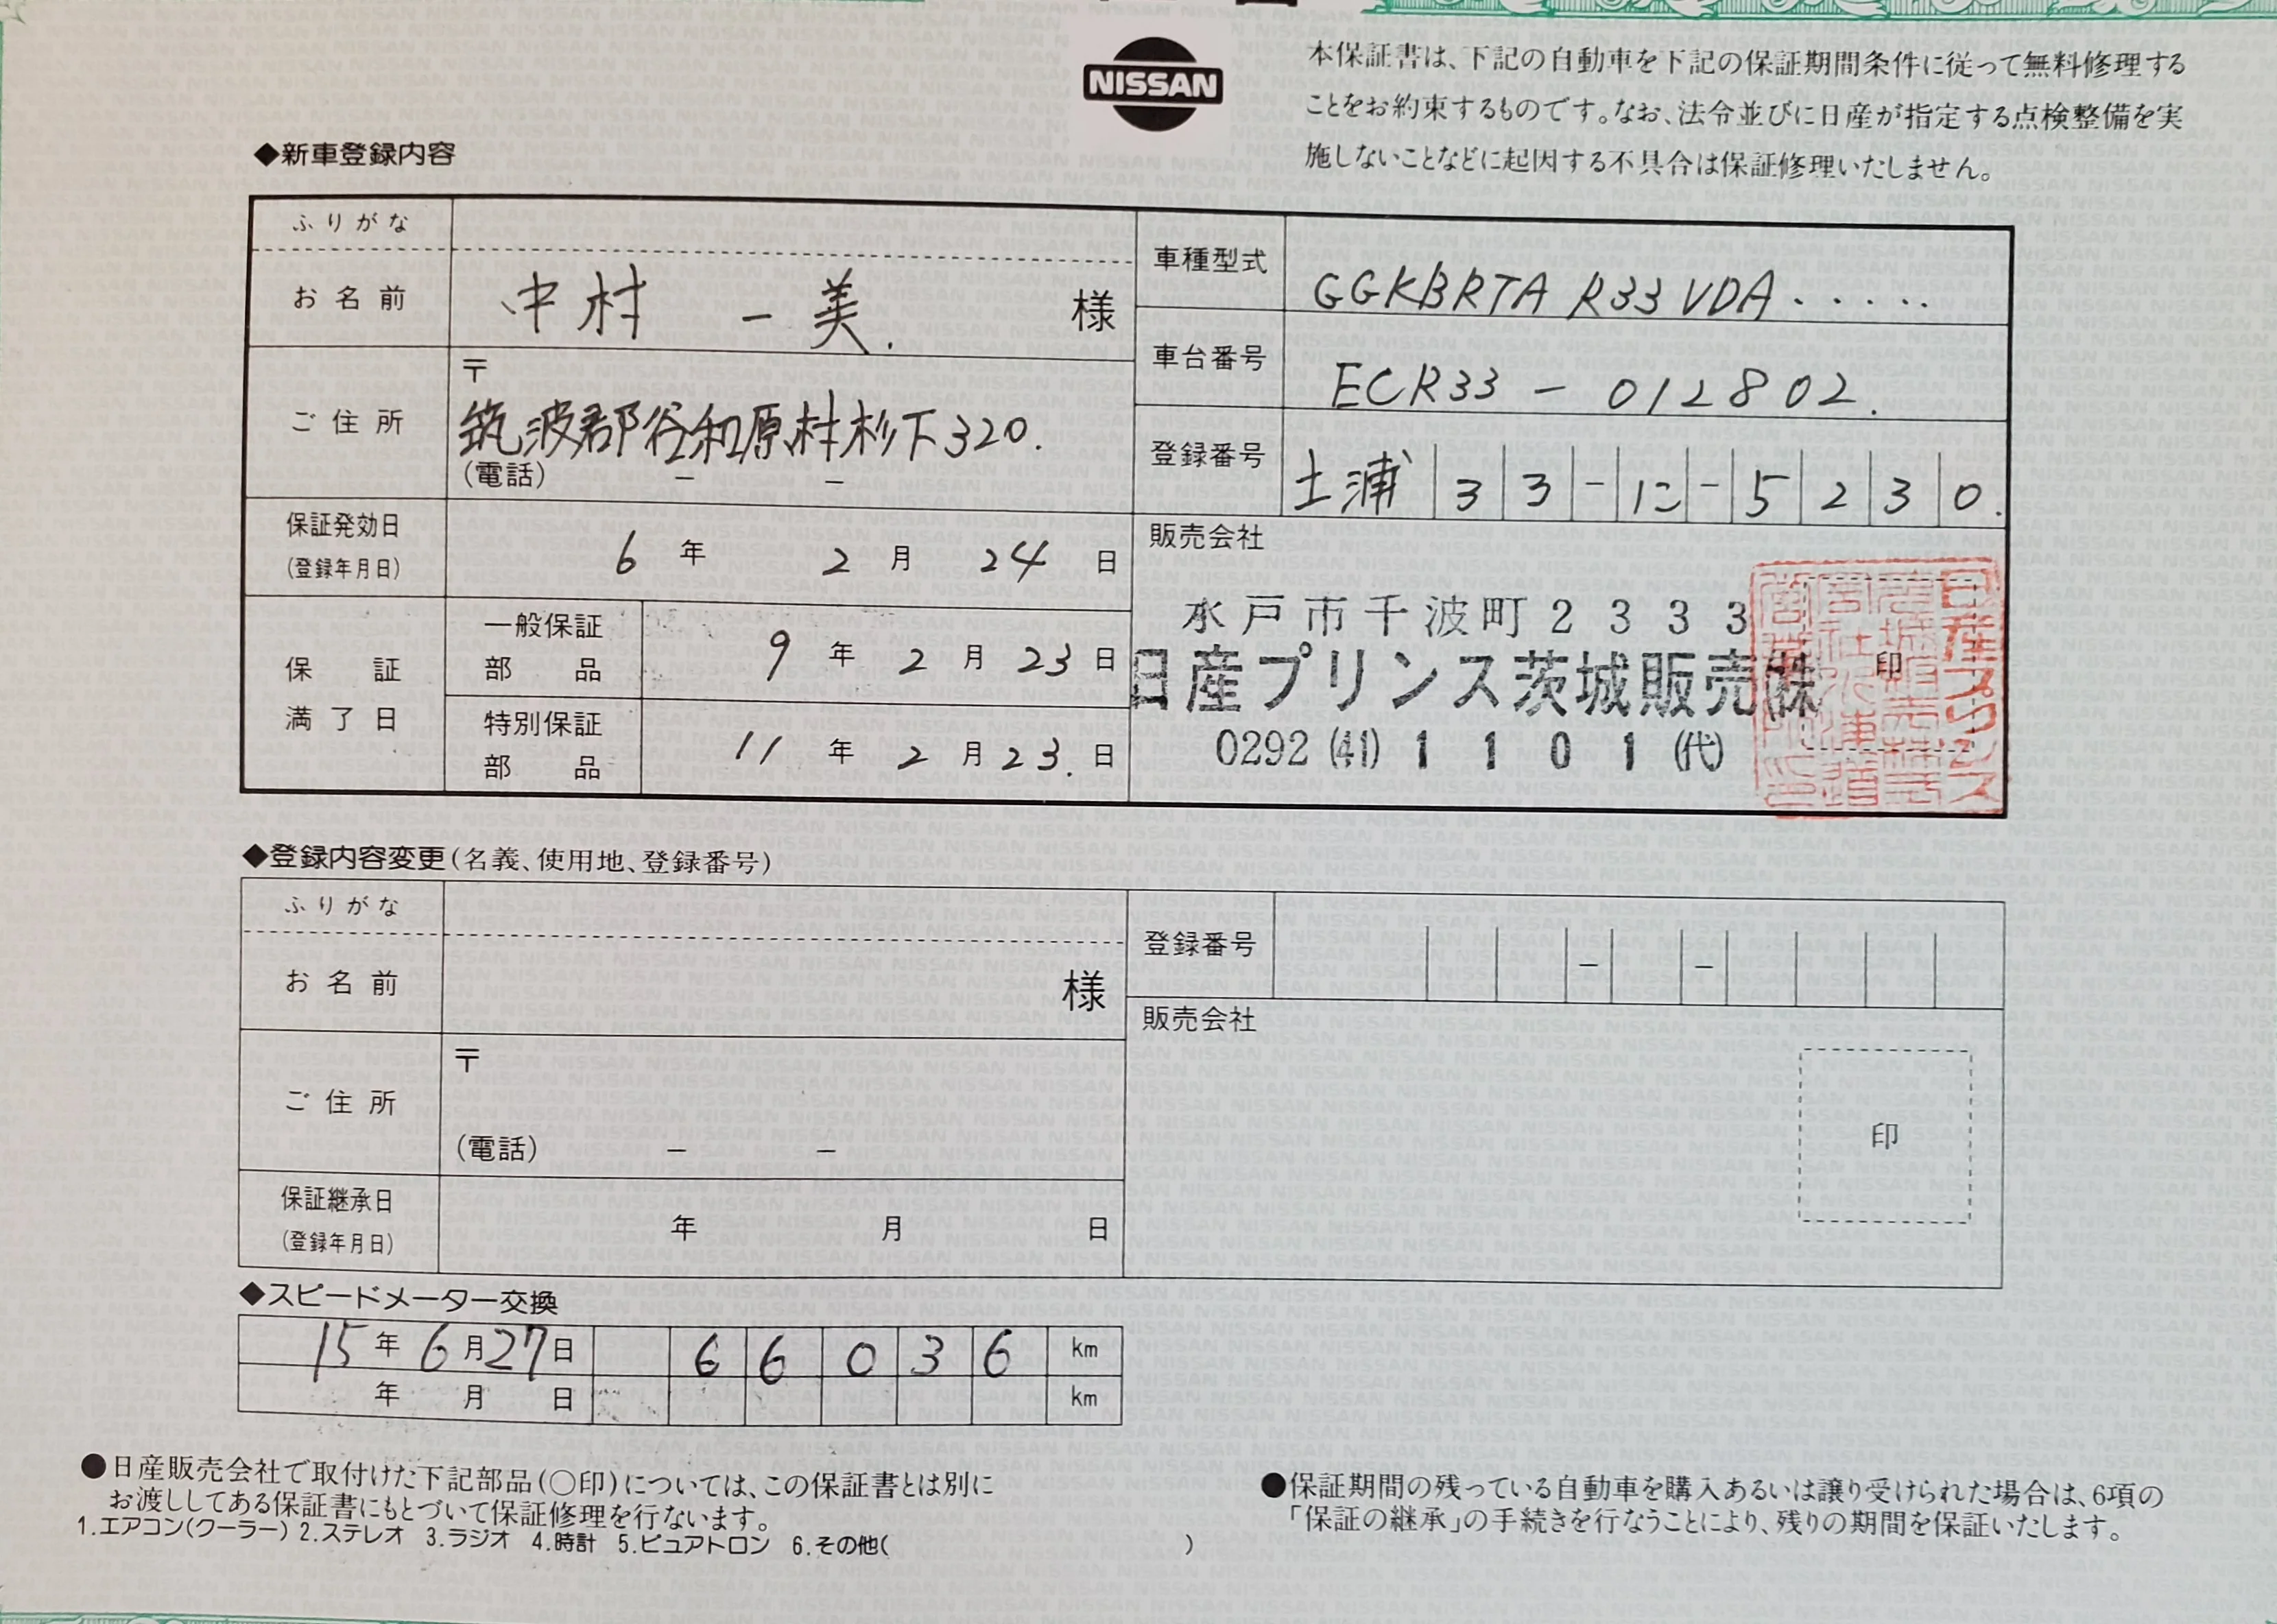 NISSAN
本保証書は、下記の自動車を下記の保証期間条件に従って無料修理する
ことをお約束するものです。なお、法令並びに日産が指定する点検整備を実
施しないことなどに起因する不具合は保証修理いたしません。
◆新車登録内容
ふりがな
お名前 中村 一美. 様
ご住所 〒
筑波郡谷和原村杉下320.
(電話) － －
保証発効日 (登録年月日) 6年 2月 24日
保証満了日
一般保証部品 9年 2月 23日
特別保証部品 11年 2月 23.日
車種型式 GGKBRTA R33 VDA.....
車台番号 ECR33-012802.
登録番号 土浦 33-に-5230.
販売会社
水戸市千波町2333
日産プリンス茨城販売㈱
0292(41)1101(代)
印
◆登録内容変更(名義、使用地、登録番号)
ふりがな
お名前 様
ご住所 〒
(電話) － －
保証継承日 (登録年月日) 年 月 日
登録番号 － －
販売会社
印
◆スピードメーター交換
15年6月27日 66036 km
年 月 日 km
●日産販売会社で取付けた下記部品(○印)については、この保証書とは別に
お渡ししてある保証書にもとづいて保証修理を行ないます。
1.エアコン(クーラー) 2.ステレオ 3.ラジオ 4.時計 5.ピュアトロン 6.その他( )
●保証期間の残っている自動車を購入あるいは譲り受けられた場合は、6項の
「保証の継承」の手続きを行なうことにより、残りの期間を保証いたします。